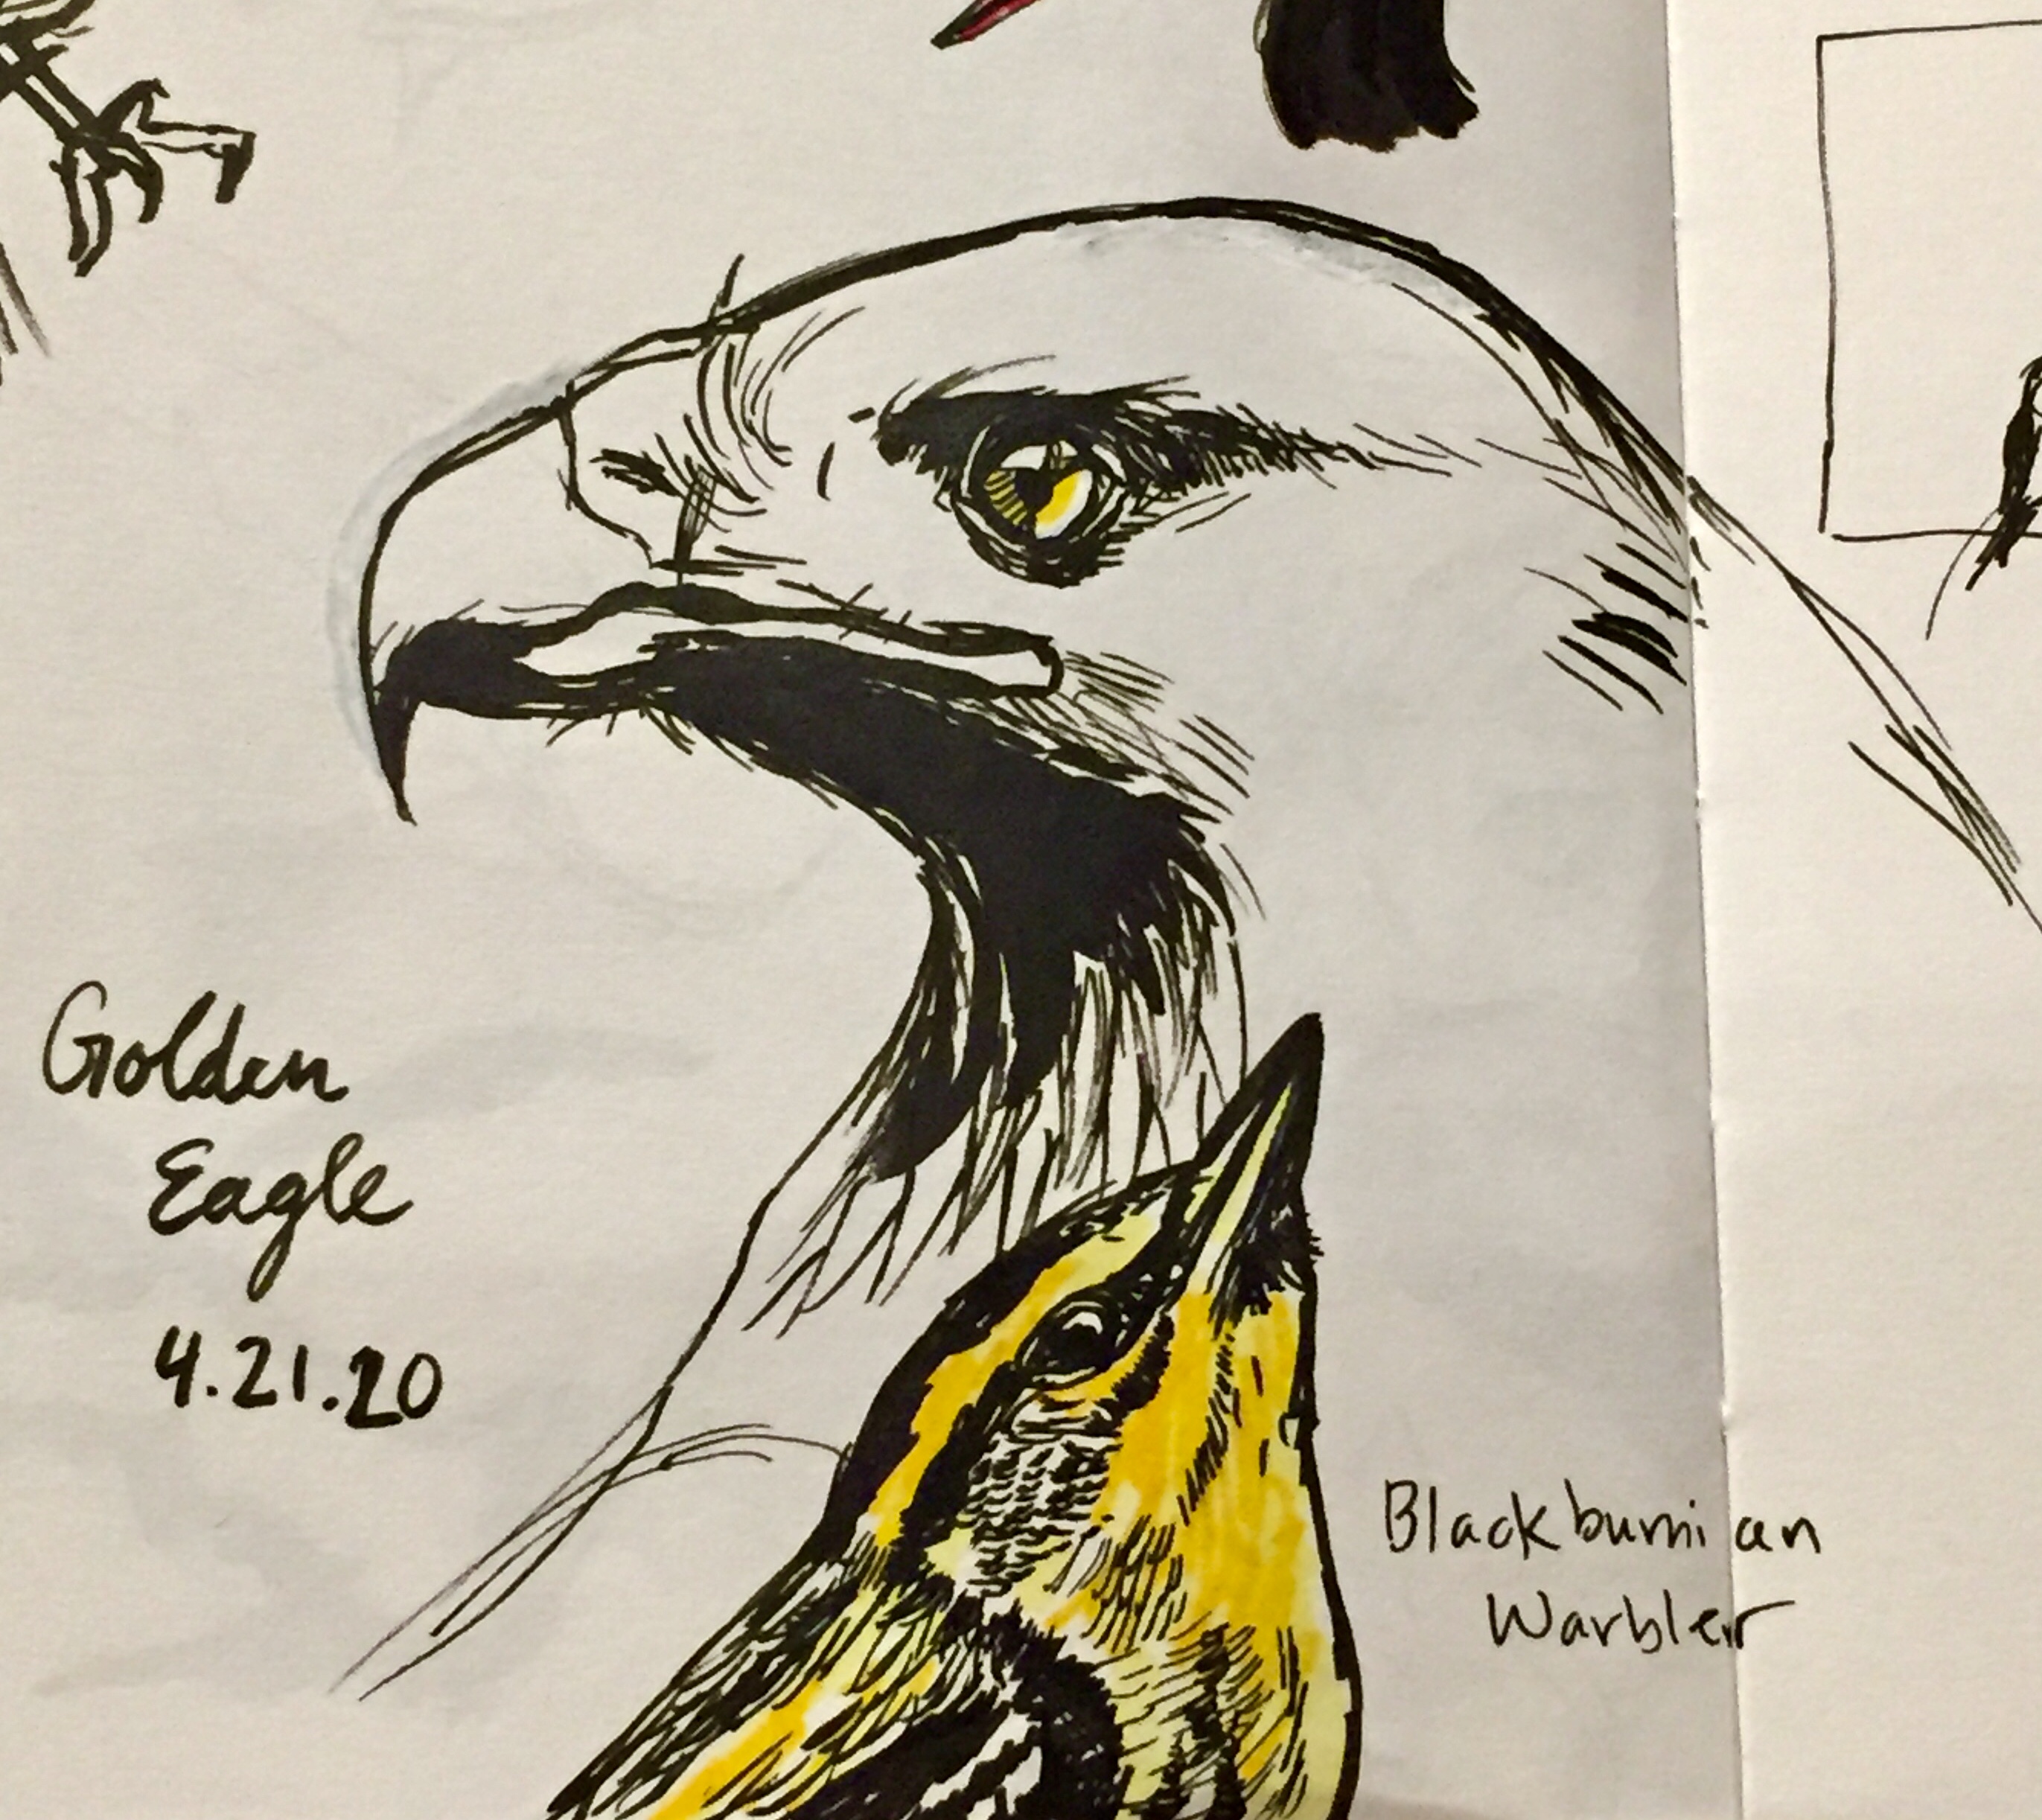 Golden
Eagle
4.21.20
Blackburnian
Warbler